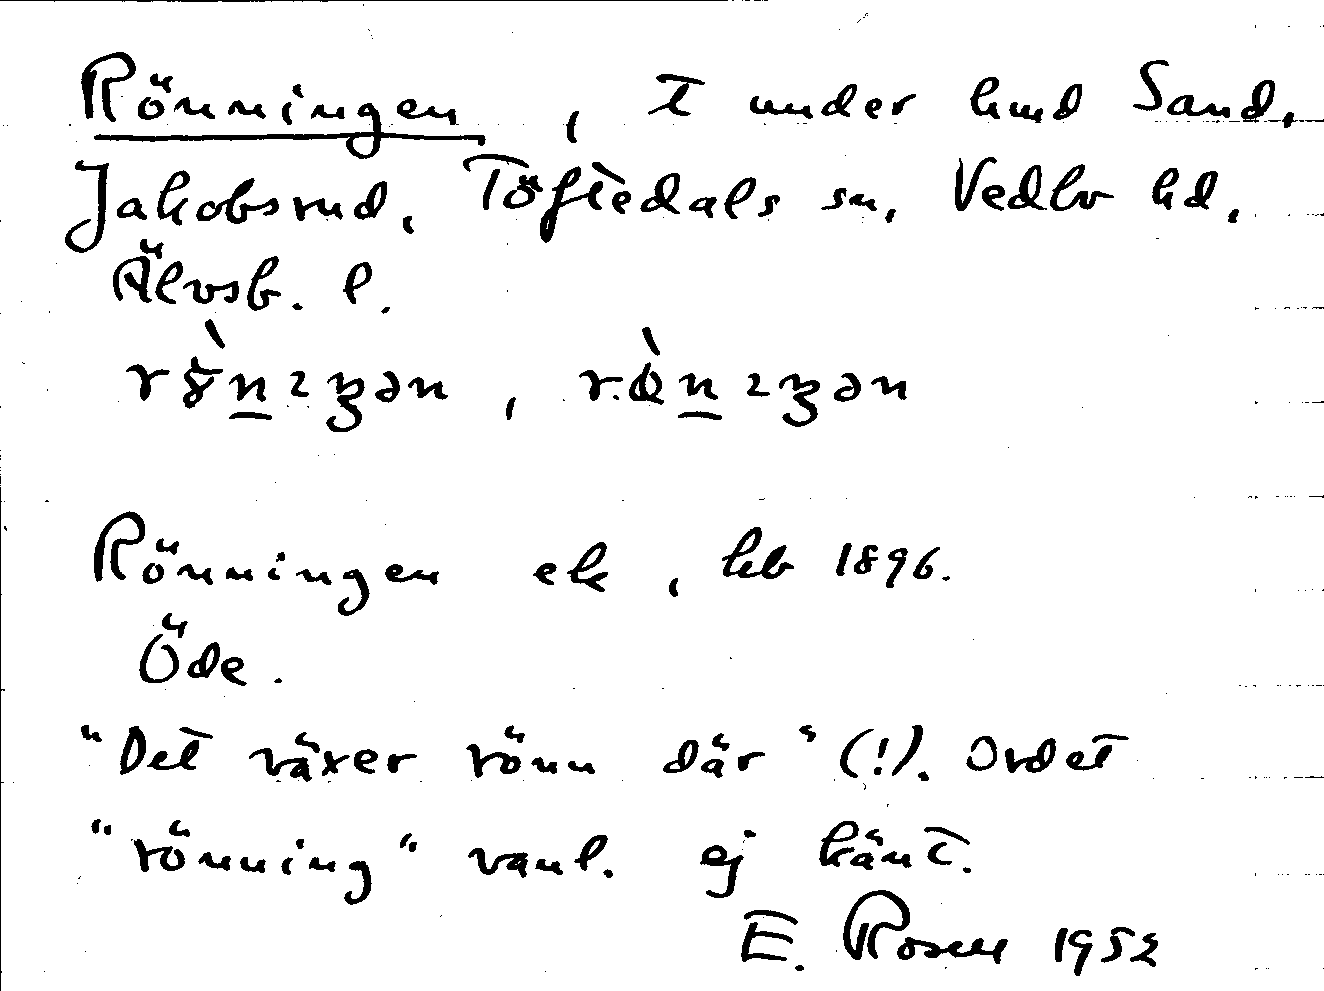 Rönningen, t under hmd Sand,
Jakobsrud, Töftedals sn, Vedbo hd,
Älvsb. l.
Rönningen ek, hkb 1896.
Öde.
"Det växer rönn där" (!). Ordet
"rönning" vanl. ej känt.
E. Rosell 1952